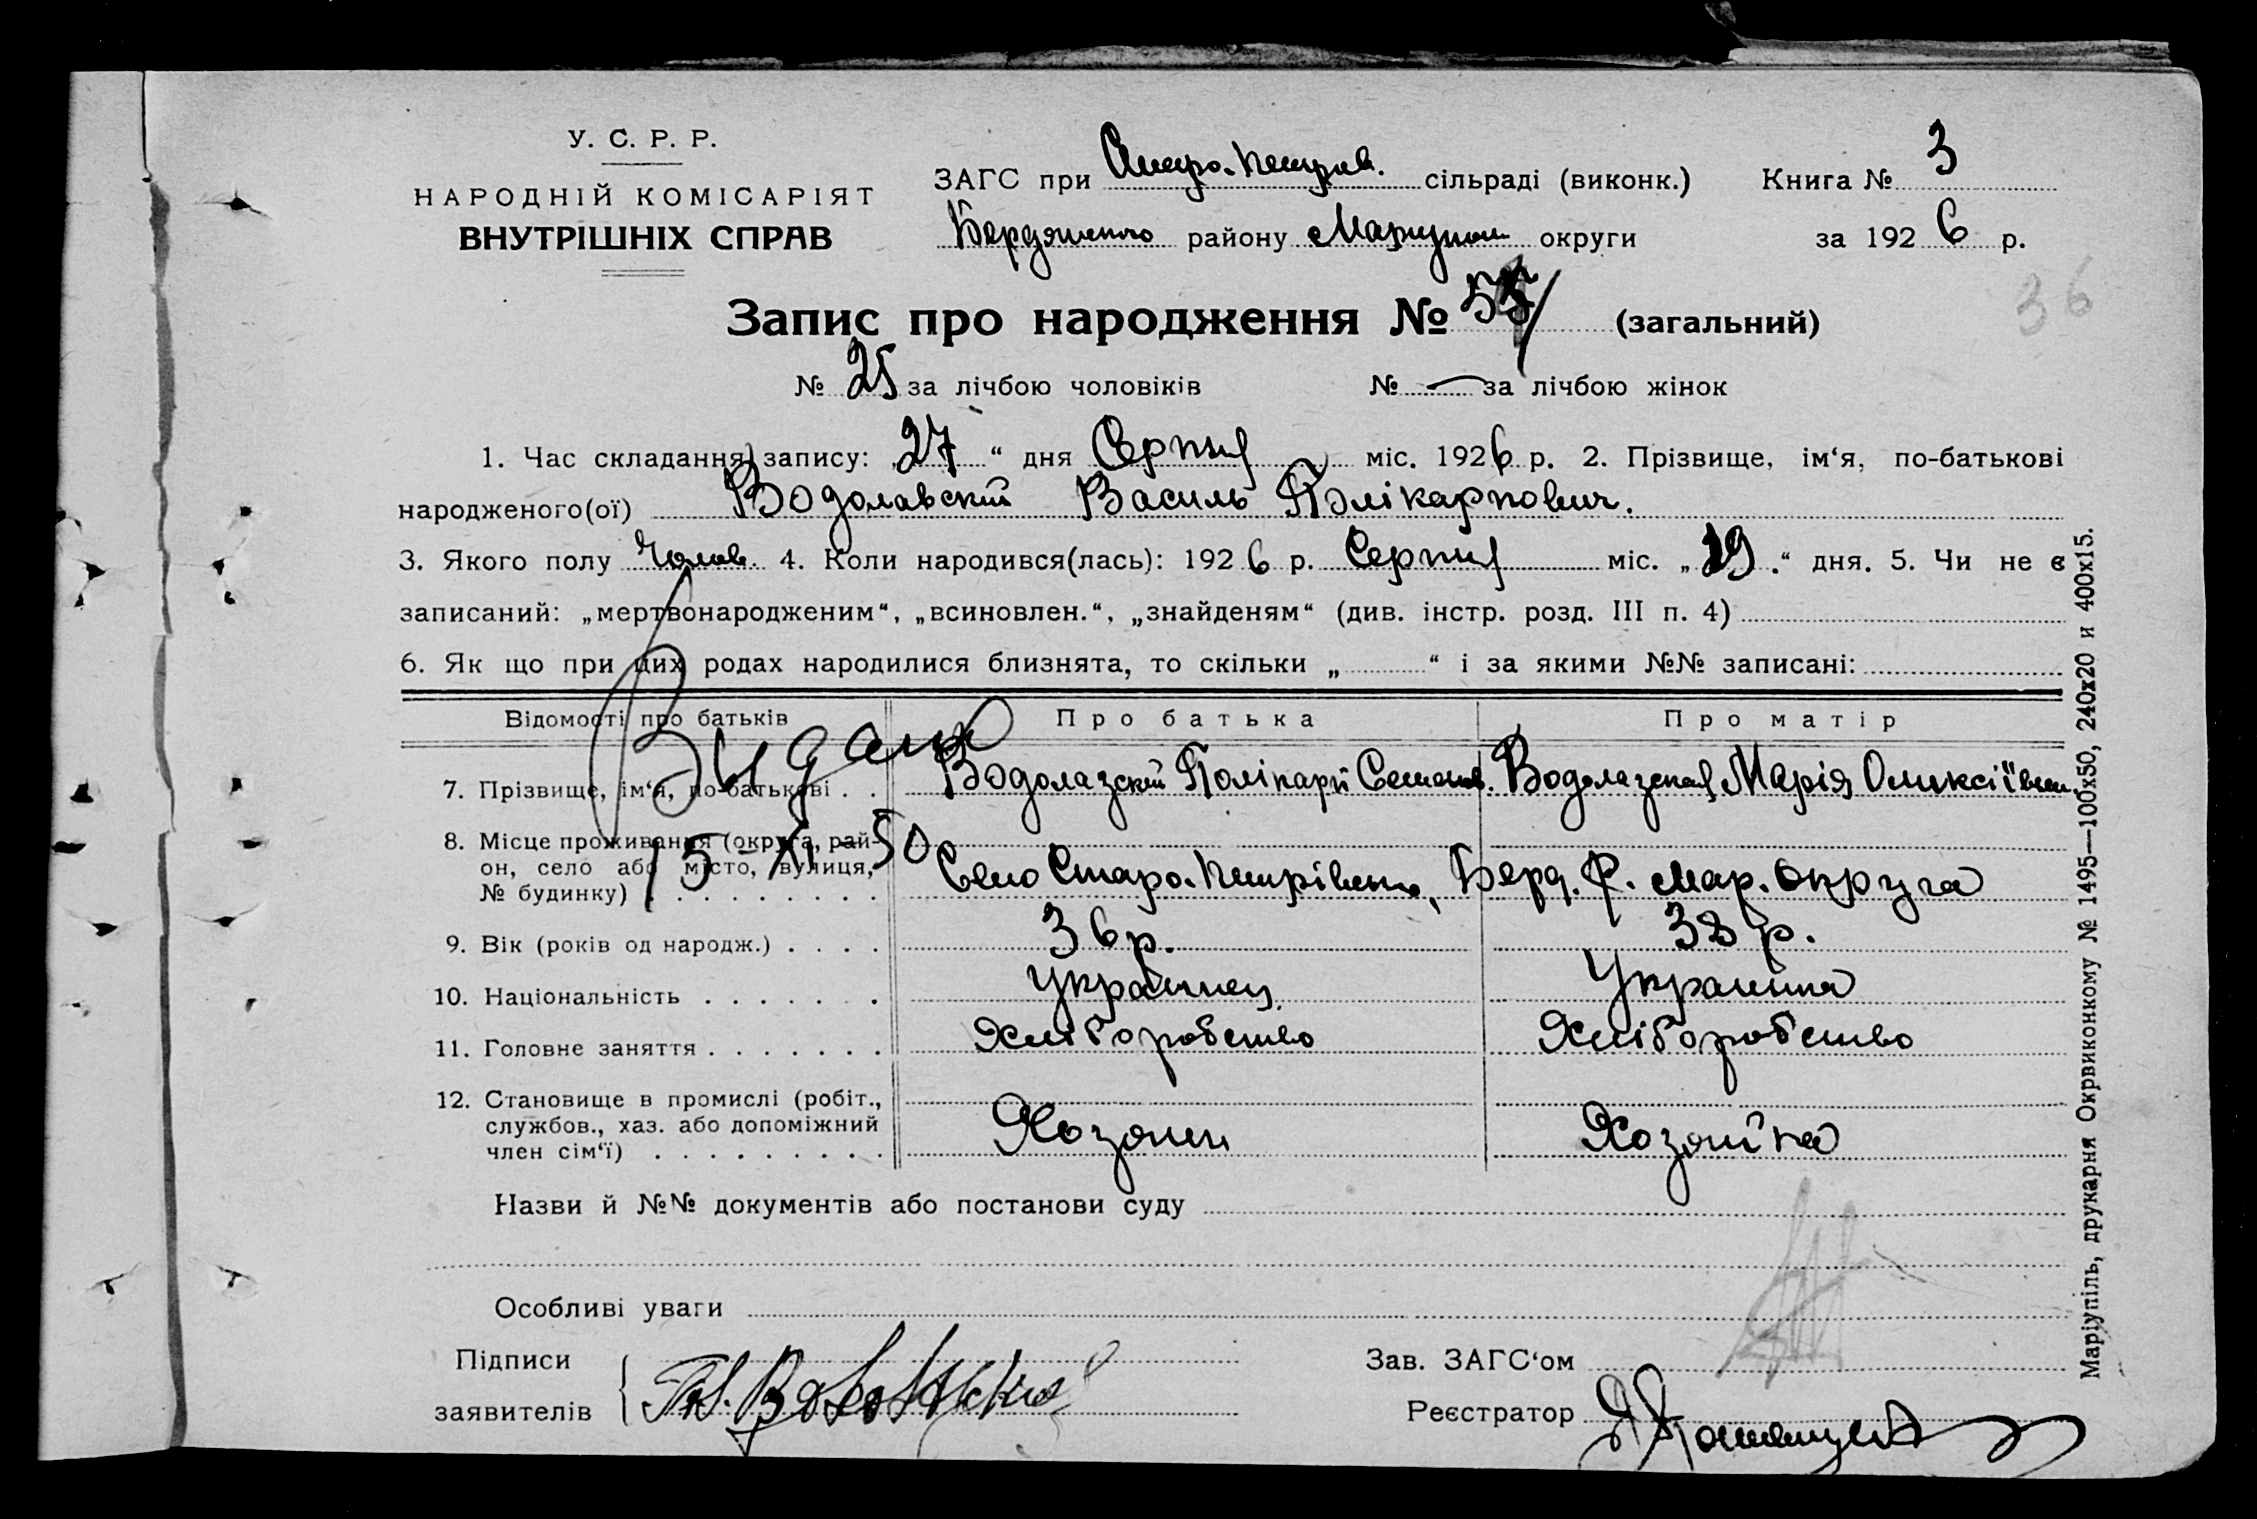 У. С. Р. Р.
НАРОДНІЙ КОМІСАРІЯТ
ВНУТРІШНІХ СПРАВ
ЗАГС при Старо-Петров. сільраді (виконк.) Книга № 3
Бердянського району Маріупол округи за 1926 р.
36
Запис про народження № 55 (загальний)
№ 25 за лічбою чоловіків № — за лічбою жінок
1. Час складання запису: „27“ дня Серпня міс. 1926 р. 2. Прізвище, ім‘я, по-батькові
народженого(ої) Водолавский Василь Полікарпович.
3. Якого полу Чолов. 4. Коли народився(лась): 1926 р. Серпня міс. „19.“ дня. 5. Чи не є
записаний: „мертвонародженим“, „всиновлен.“, „знайденям“ (див. інстр. розд. III п. 4)
6. Як що при цих родах народилися близнята, то скільки „ “ і за якими №№ записані:
Відомості про батьків Про батька Про матір
Выдано
15-XI-50
7. Прізвище, ім‘я, по-батькові . . Водолазский Полікарп Семенов. Водолазская Марія Оликсіївна
8. Місце проживання (округа, рай-
он, село або місто, вулиця,
№ будинку) . . . . . . . . . Село Старо-Петрівка, Берд. Р. Мар. округа
9. Вік (років од народж.) . . . . 36 р. 33 р.
10. Національність . . . . . . . Украинец Украинка
11. Головне заняття . . . . . . . Хліборобство Хліборобство
12. Становище в промислі (робіт.,
службов., хаз. або допоміжний
член сім‘ї) . . . . . . . . . Хозяин Хозяйка
Назви й №№ документів або постанови суду
Особливі уваги
Підписи
заявителів
Зав. ЗАГС‘ом
Реєстратор
Маріупіль, друкарня Окрвиконкому № 1495—100x50, 240x20 и 400x15.